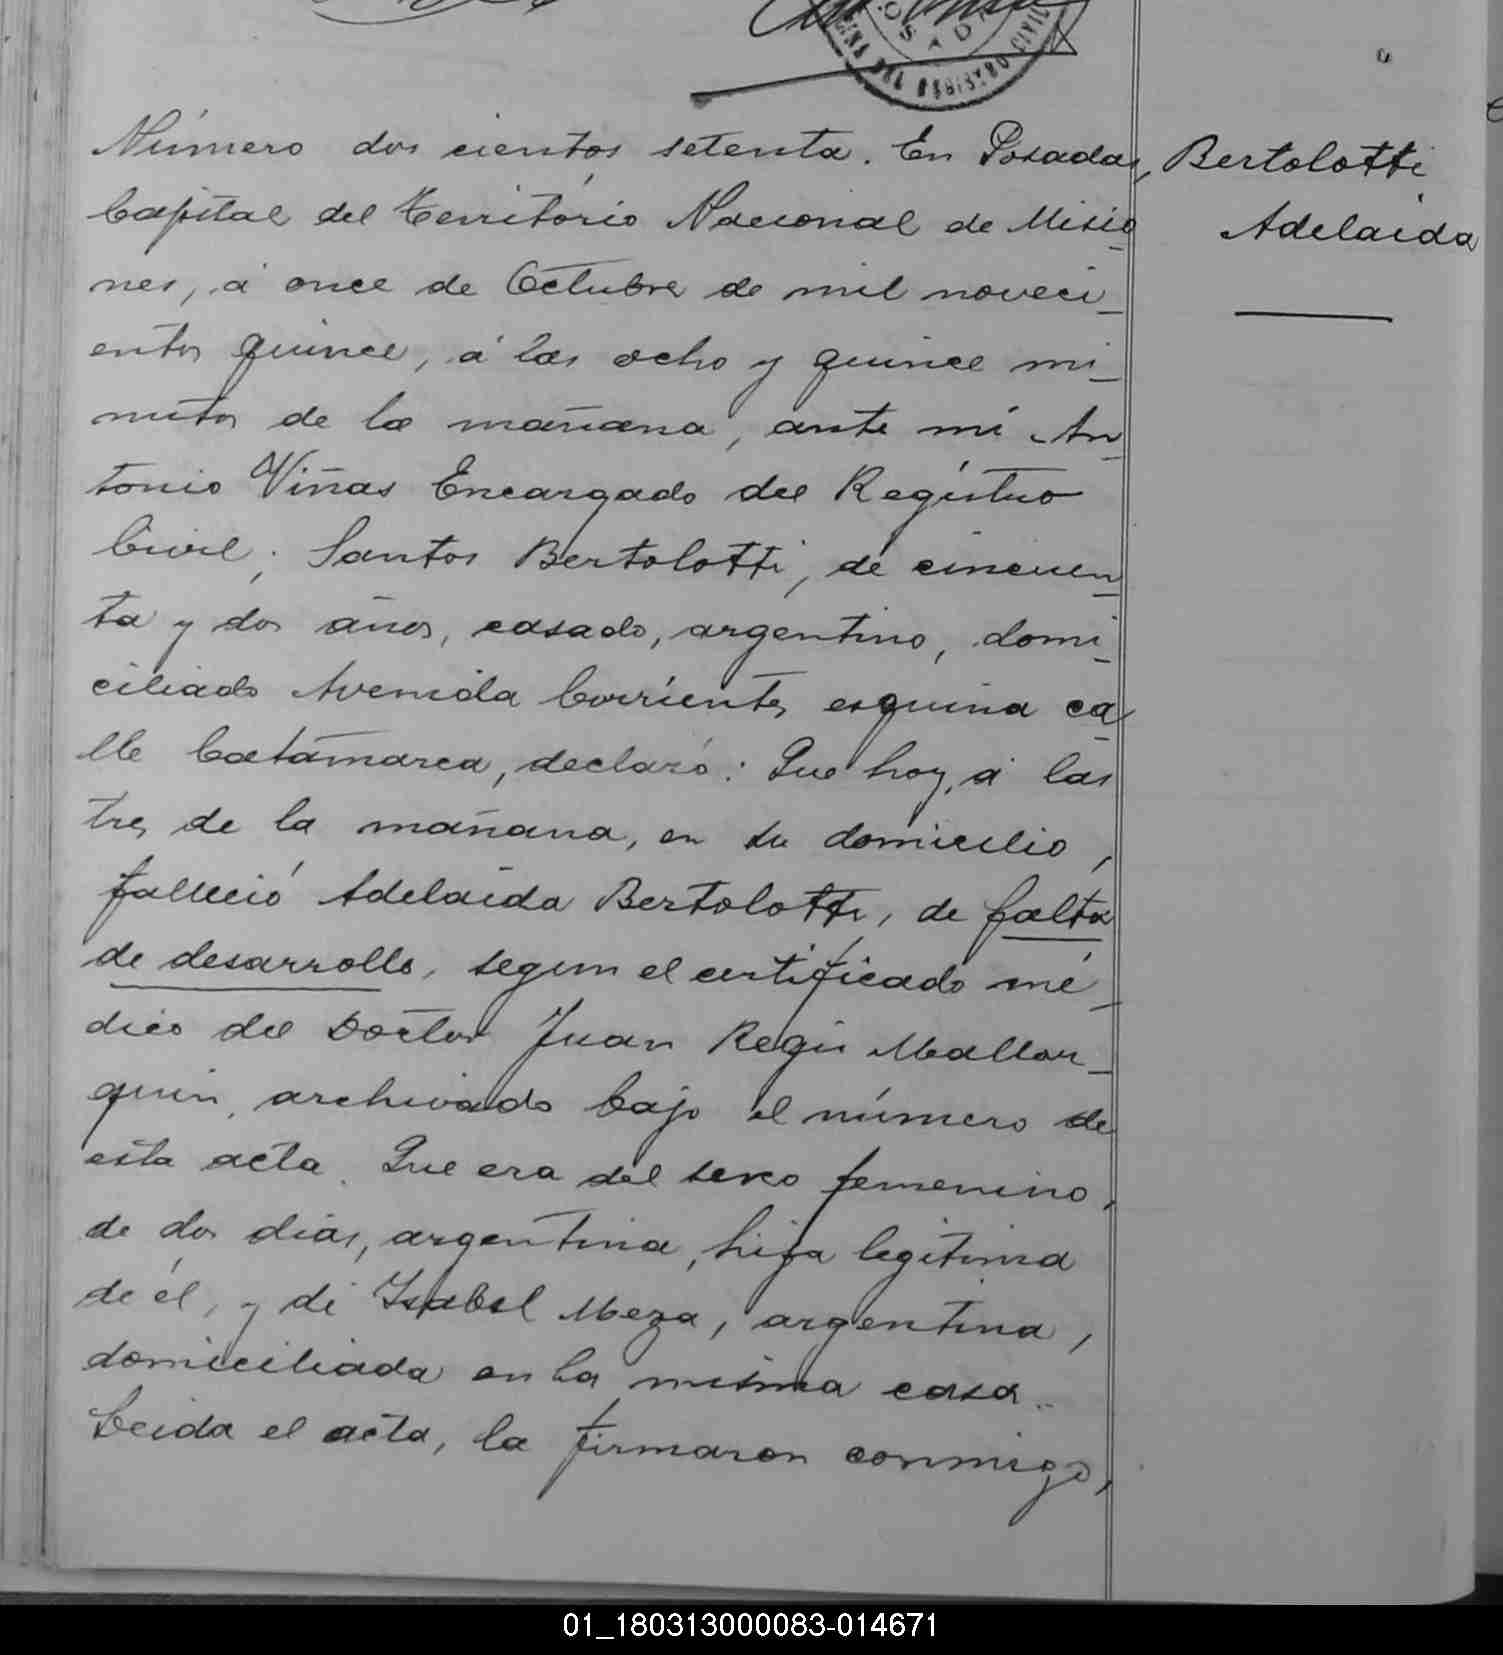 OFICINA DEL REGISTRO CIVIL
POSADAS
Número dos cientos setenta. En Posadas,
Capital del Territorio Nacional de Misio
nes, á once de Octubre de mil noveci_
entos quince, á las ocho y quince mi_
nutos de la mañana, ante mí An_
tonio Viñas Encargado del Registro
Civil; Santos Bertolotti, de cincuen_
ta y dos años, casado, argentino, domi_
ciliado Avenida Corrientes esquina ca_
lle Catamarca, declaró: Que hoy, á las
tres de la mañana, en su domicilio,
falleció Adelaida Bertolotti, de falta
de desarrollo, segun el certificado mé_
dico del Doctor Juan Regis Mallor_
quin, archivado bajo el número de
esta acta. Que era del sexo femenino,
de dos días, argentina, hija legítima
de él, y de Isabel Meza, argentina,
domiciliada en la misma casa.
Leida el acta, la firmaron conmigo,
Bertolotti
Adelaida
01_180313000083-014671